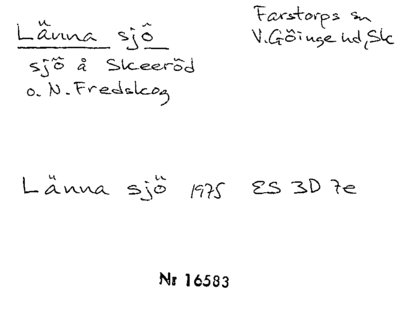 Länna sjö
sjö å Skeeröd
o. N. Fredskog
Farstorps sn
V. Göinge hd, Sk
Länna sjö 1975 ES 3D 7e
Nr 16583